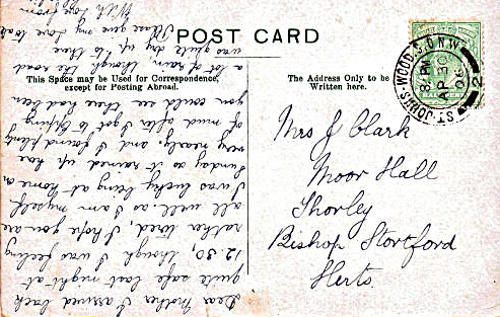 POST CARD
This Space may be Used for Correspondence,
except for Posting Abroad.
The Address Only to be
Written here.
ST JOHN'S-WOOD.S.O N.W
8. PM
AP 30
06
2
Mrs J Clark
Moor Hall
Thorley
Bishop Stortford
Herts.
Dear Mother I arrived back
quite safe last night at
12.30, though I was feeling
rather tired, I hope you are
all well. as I am myself
I was lucky being at home on
Sunday as it rained up here
very nearly, and I found plenty
of mud after I got to Epping
you could see there had been
a lot of rain, though the road
was quite dry up to there
Please give my love to all
With love from